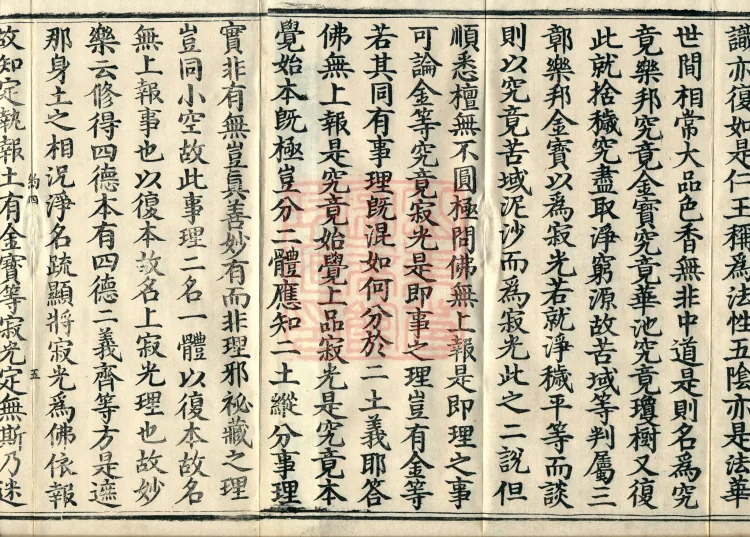 識亦復如是仁王稱爲法性五陰亦是法華
世間相常大品色香無非中道是則名爲究
竟樂邦究竟金寶究竟華池究竟瓊樹又復
此就捨穢究盡取淨窮源故苦域等判屬三
鄣樂邦金寶以爲寂光若就淨穢平等而談
則以究竟苦域泥沙而爲寂光此之二說但
順悉檀無不圓極問佛無上報是即理之事
可論金等究竟寂光是即事之理豈有金等
若其同有事理旣混如何分於二土義耶答
佛無上報是究竟始覺上品寂光是究竟本
覺始本旣極豈分二體應知二土縱分事理
實非有無豈眞善妙有而非理邪祕藏之理
豈同小空故此事理二名一體以復本故名
無上報事也以復本故名上寂光理也故妙
樂云修得四德本有四德二義齊等方是遮
那身土之相況淨名疏顯將寂光爲佛依報
約四
五
故知定執報土有金寶等寂光定無斯乃迷